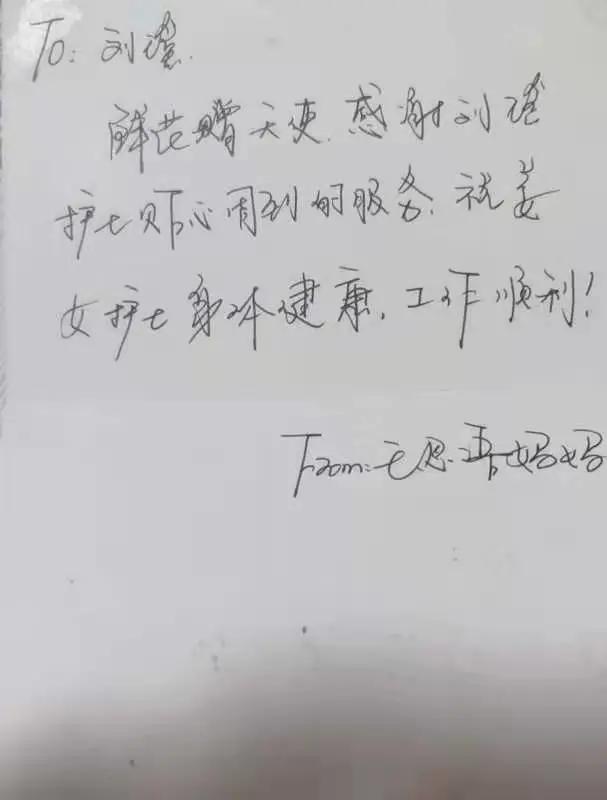 To: 刘
鲜花赠天使.感谢刘
护士贴心周到的服务.祝美
女护士身体健康.工作顺利!
From: 妈妈